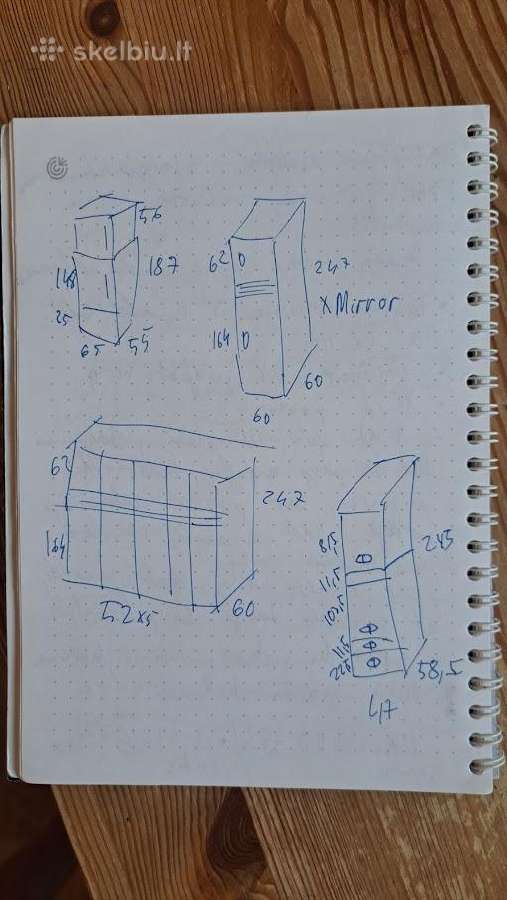 skelbiu.lt
56
148
187
25
65
55
62
247
x Mirror
164
60
60
62
247
164
52 x5
60
245
11,5
103,5
11,5
58,5
47